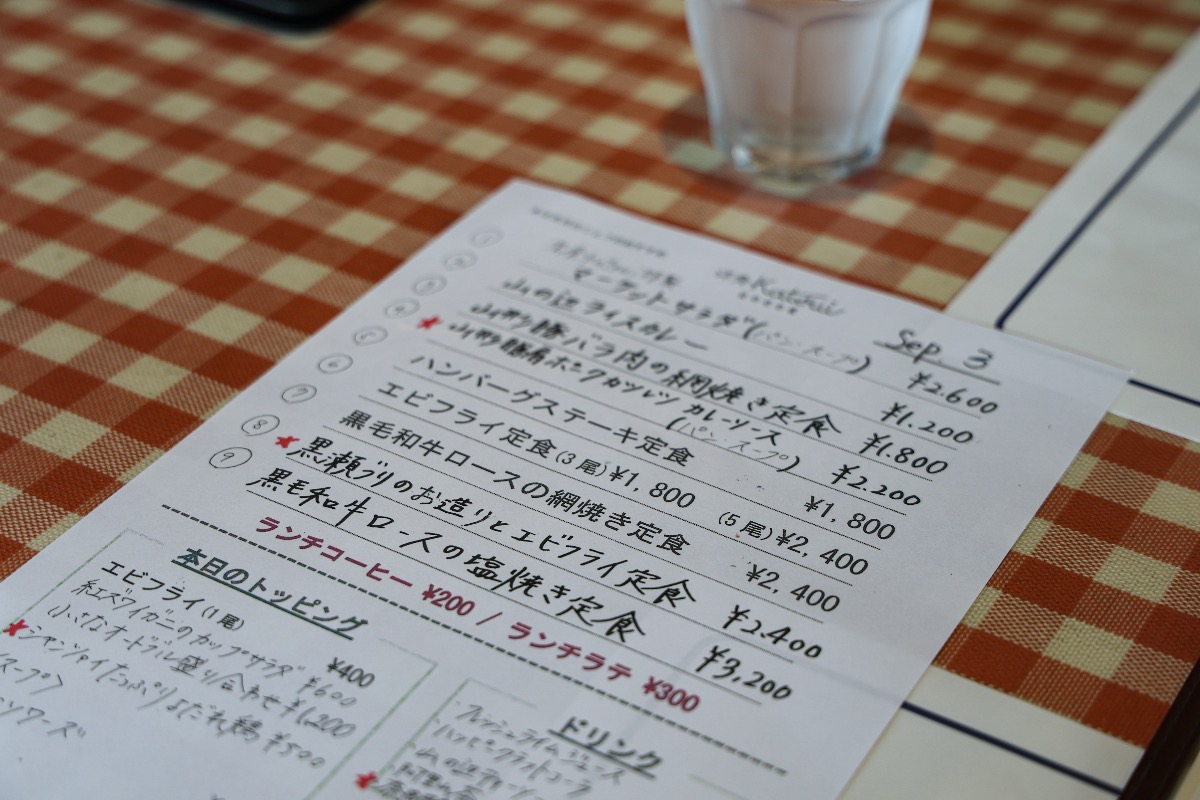 Sep. 3
① マーケットサラダ(パン・スープ) ¥2.600
② 山の辺ライスカレー ¥1.200
③ 豚バラ肉の網焼き定食 ¥1.800
④ カツレツ カレーソース (パン・スープ) ¥2.200
⑤ ハンバーグステーキ定食 ¥1,800
⑥ エビフライ定食(3尾)¥1,800 (5尾)¥2,400
⑦ 黒毛和牛ロースの網焼き定食 ¥2,400
⑧ 黒瀬ブリのお造りとエビフライ定食 ¥2.400
⑨ 黒毛和牛ロースの塩焼き定食 ¥3,200
ランチコーヒー ¥200 / ランチラテ ¥300
本日のトッピング
エビフライ(1尾) ¥400
紅ズワイガニのカップサラダ ¥600
小さなオードブル盛り合わせ ¥1,200
シャンツァイたっぷりよだれ鶏 ¥500
スープ)
ドリンク
フレッシュライムジュース